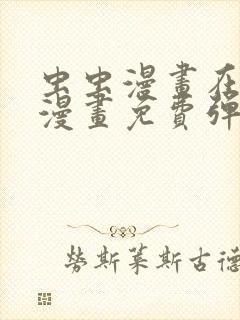 虫虫漫畫在
漫畫免費彈
勞斯萊斯古德